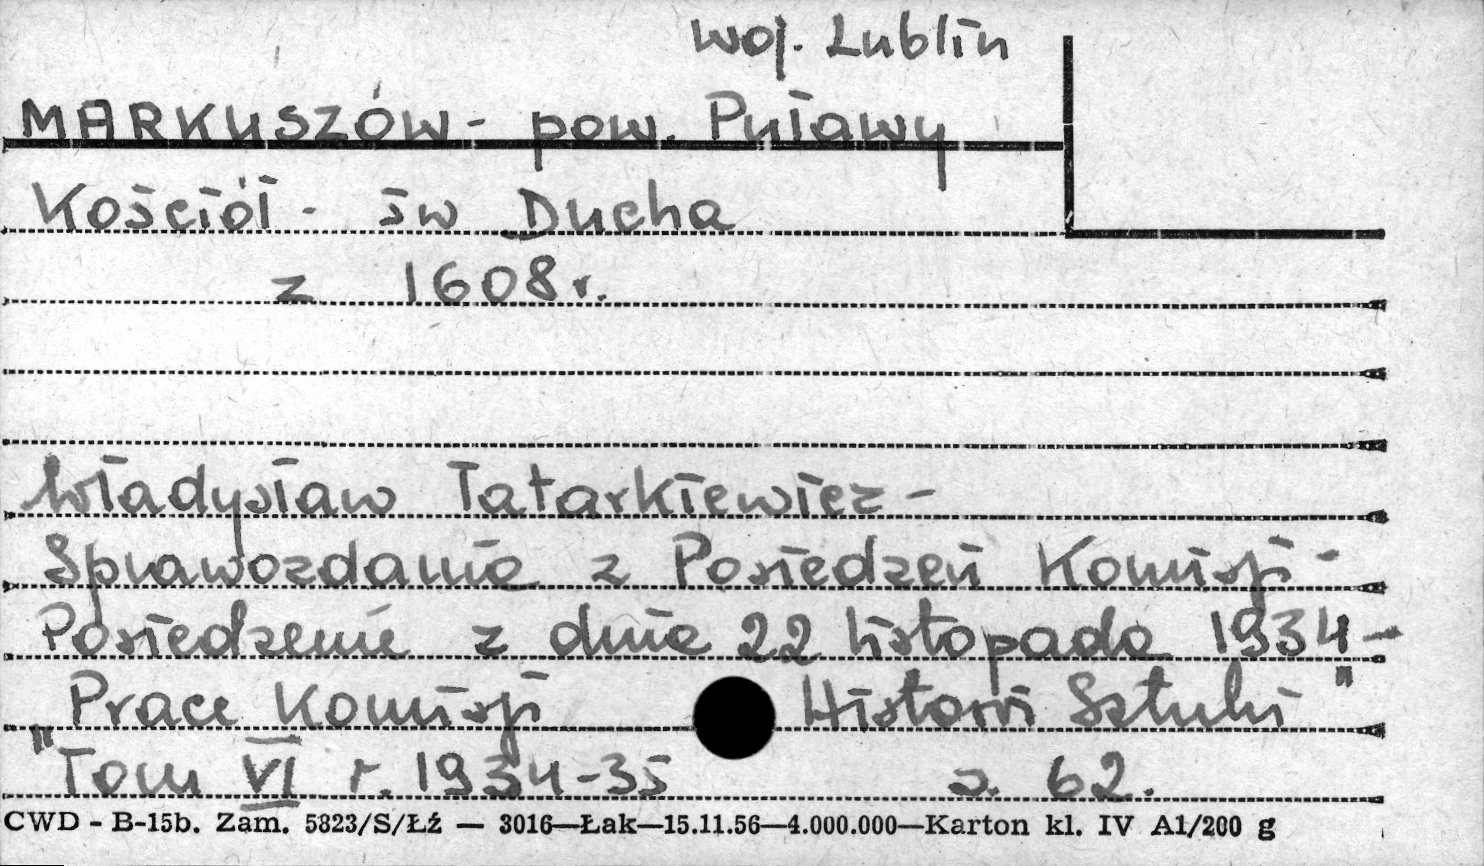 woj. Lublin
MARKUSZÓW - pow. Puławy
Kościół - św Ducha
z 1608 r.
Władysław Tatarkiewicz -
Sprawozdanie z Posiedzeń Komisji -
Posiedzenie z dnia 22 listopada 1934 -
„Prace Komisji Historii Sztuki"
Tom VI r. 1934-35 s. 62.
CWD - B-15b. Zam. 5823/S/Łź — 3016—Łak—15.11.56—4.000.000—Karton kl. IV A1/200 g